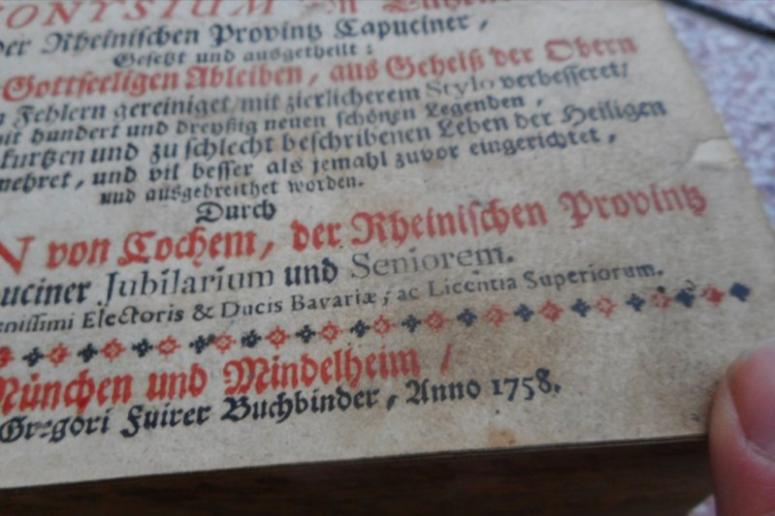 ONYSIUM von
der Rheinischen Provintz Capuciner,
Gesetzt und ausgetheilt:
Gottseeligen Ableiben, aus Geheiß der Obern
Fehlern gereiniget/mit zierlicherem Stylo verbesseret/
mit hundert und dreyßig neuen schönen Legenden,
kurtzen und zu schlecht beschribenen Leben der Heiligen
mehret, und vil besser als jemahl zuvor eingerichtet,
und ausgebreithet worden.
Durch
N von Cochem, der Rheinischen Provintz
uciner Jubilarium und Seniorem.
enissimi Electoris & Ducis Bavariæ, ac Licentia Superiorum.
München und Mindelheim /
Gregori Fuirer Buchbinder, Anno 1758.